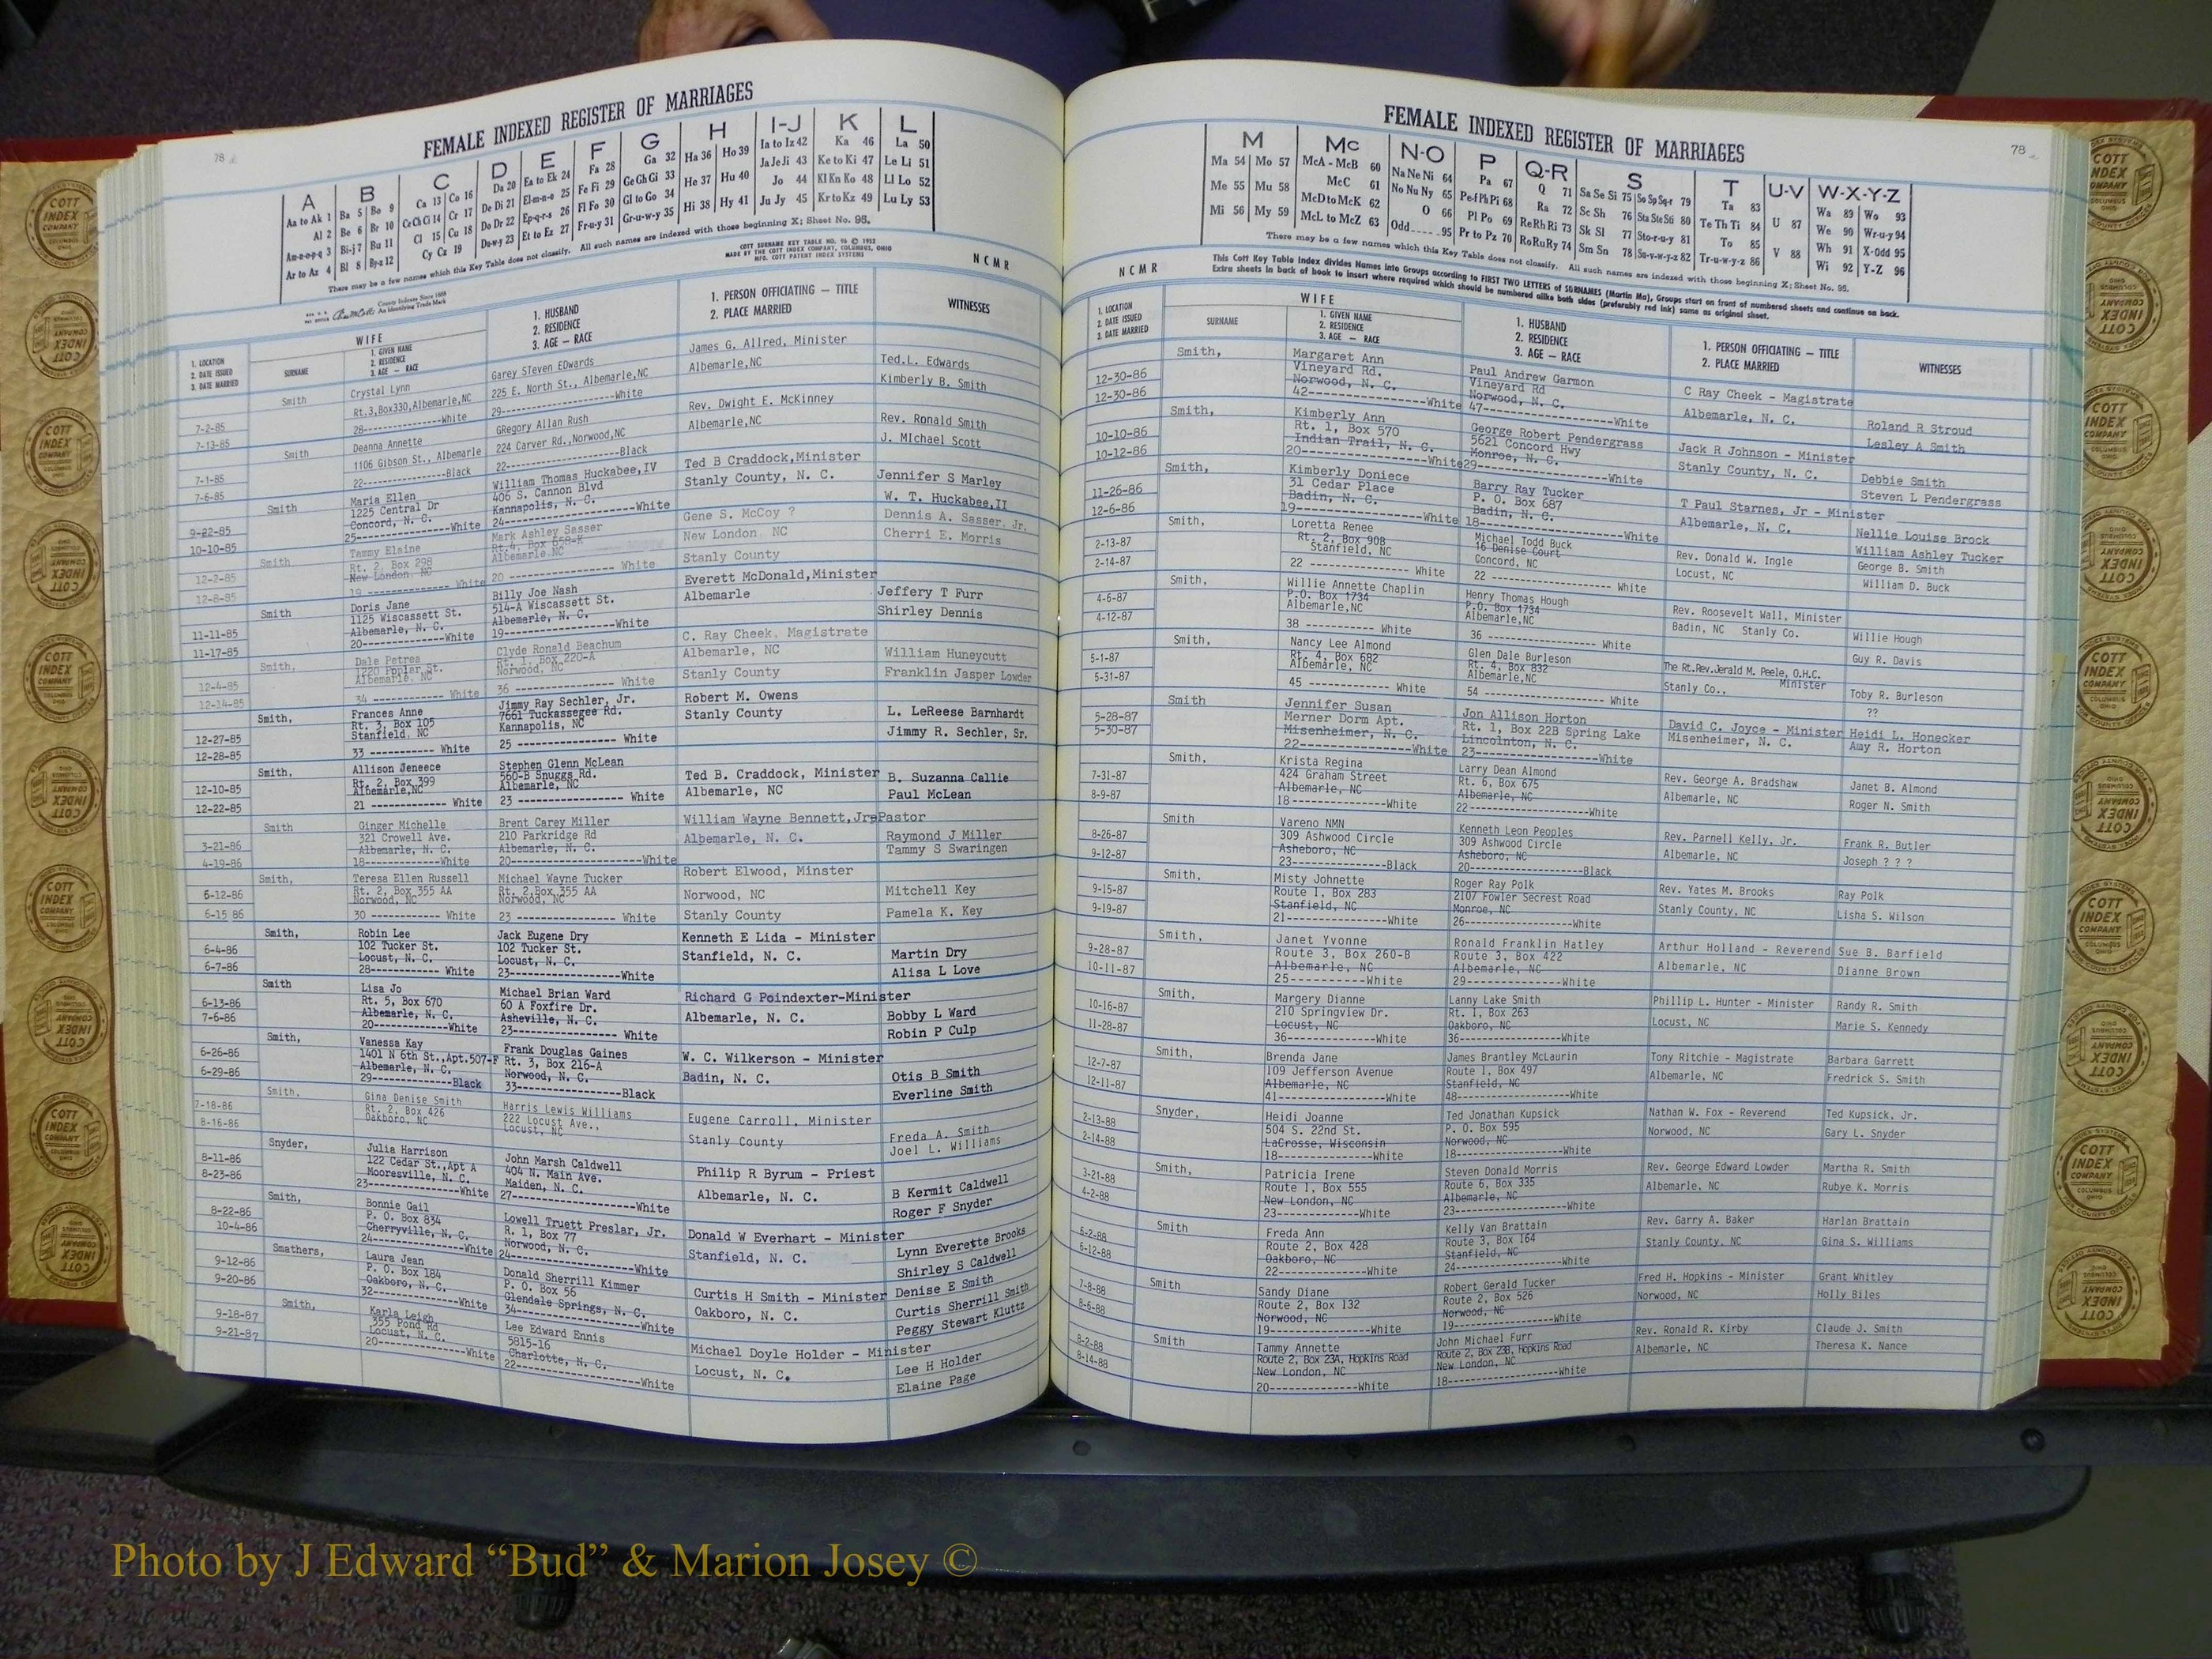 78
FEMALE INDEXED REGISTER OF MARRIAGES
A B C D E F G H I-J K L
Aa to Ak 1 Ba 5 Bo 9 Ca 13 Co 16 Da 20 Ea to Ek 24 Fa 28 Ga 32 Ha 36 Ho 39 Ia to Iz 42 Ka 46 La 50
Al 2 Be 6 Br 10 Ce Ch Ci 14 Cr 17 De Di 21 El-m-n-o 25 Fe Fi 29 Ge Gh Gi 33 He 37 Hu 40 Ja Je Ji 43 Ke to Ki 47 Le Li 51
Am-n-o-p-q 3 Bi-j 7 Bu 11 Cl 15 Cu 18 Do Dr 22 Ep-q-r-s 26 Fl Fo 30 Gl to Go 34 Hi 38 Hy 41 Jo 44 Kl Kn Ko 48 Ll Lo 52
Ar to Az 4 Bl 8 By-z 12 Cy Cz 19 Du-w-y 23 Et to Ez 27 Fr-u-y 31 Gr-u-w-y 35 Ju Jy 45 Kr to Kz 49 Lu Ly 53
There may be a few names which this Key Table does not classify. All such names are indexed with those beginning X; Sheet No. 95.
COTT SURNAME KEY TABLE NO. 96 © 1952
MADE BY THE COTT INDEX COMPANY, COLUMBUS, OHIO
MFG. COTT PATENT INDEX SYSTEMS
County Indexes Since 1888
An Identifying Trade Mark
N C M R
1. LOCATION
2. DATE ISSUED
3. DATE MARRIED
WIFE
SURNAME
1. GIVEN NAME
2. RESIDENCE
3. AGE — RACE
1. HUSBAND
2. RESIDENCE
3. AGE — RACE
1. PERSON OFFICIATING — TITLE
2. PLACE MARRIED
WITNESSES
Smith Crystal Lynn Garey Steven EDwards James G. Allred, Minister Ted.L. Edwards
7-2-85 Rt.3,Box330,Albemarle,NC 225 E. North St., Albemarle,NC Albemarle,NC Kimberly B. Smith
7-13-85 28----------White 29----------White
Smith Deanna Annette GRegory Allan Rush Rev. Dwight E. McKinney Rev. Ronald Smith
7-1-85 1106 Gibson St., Albemarle 224 Carver Rd.,Norwood,NC Albemarle,NC J. MIchael Scott
7-6-85 22----------Black 22----------Black
Smith Maria Ellen William Thomas Huckabee,IV Ted B Craddock,Minister Jennifer S Marley
9-22-85 1225 Central Dr 406 S. Cannon Blvd Stanly County, N. C. W. T. Huckabee,II
10-10-85 Concord, N. C. Kannapolis, N. C.
25----------White 24----------White
Smith Tammy Elaine Mark Ashley Sasser Gene S. McCoy ? Dennis A. Sasser, Jr.
12-2-85 Rt. 2, Box 298 Rt.4, Box 658-K New London NC Cherri E. Morris
12-8-85 New London, NC Albemarle,NC Stanly County
19 ---------- White 20 ---------- White
Smith Doris Jane Billy Joe Nash Everett McDonald,Minister Jeffery T Furr
11-11-85 1125 Wiscassett St. 514-A Wiscassett St. Albemarle Shirley Dennis
11-17-85 Albemarle, N. C. Albemarle, N. C.
20----------White 19----------White
Smith, Dale Petrea Clyde Ronald Beachum C. Ray Cheek, Magistrate William Huneycutt
12-4-85 1220 Poplar St. Rt. 1, Box 220-A Albemarle, NC Franklin Jasper Lowder
12-14-85 Albemarle, NC Norwood, NC Stanly County
34 ---------- White 36 ---------- White
Smith, Frances Anne Jimmy Ray Sechler, Jr. Robert M. Owens L. LeReese Barnhardt
12-27-85 Rt. 3, Box 105 7661 Tuckassegee Rd. Stanly County Jimmy R. Sechler, Sr.
12-28-85 Stanfield, NC Kannapolis, NC
33 ---------- White 25 ---------- White
Smith, Allison Jeneece Stephen Glenn McLean Ted B. Craddock, Minister B. Suzanna Callie
12-10-85 Rt. 2, Box 399 560-B Snuggs Rd. Albemarle, NC Paul McLean
12-22-85 Albemarle,NC Albemarle, NC
21 ---------- White 23 ---------- White
Smith Ginger Michelle Brent Carey Miller William Wayne Bennett,Jr-Pastor Raymond J Miller
3-21-86 321 Crowell Ave. 210 Parkridge Rd Albemarle, N. C. Tammy S Swaringen
4-19-86 Albemarle, N. C. Albemarle, N. C.
18----------White 20----------White
Smith, Teresa Ellen Russell Michael Wayne Tucker Robert Elwood, Minster Mitchell Key
6-12-86 Rt. 2, Box 355 AA Rt. 2,Box 355 AA Norwood, NC Pamela K. Key
6-15 86 Norwood, NC Norwood, NC Stanly County
30 ---------- White 23 ---------- White
Smith, Robin Lee Jack Eugene Dry Kenneth E Lida - Minister Martin Dry
6-4-86 102 Tucker St. 102 Tucker St. Stanfield, N. C. Alisa L Love
6-7-86 Locust, N. C. Locust, N. C.
28---------- White 23----------White
Smith Lisa Jo Michael Brian Ward Richard G Poindexter-Minister Bobby L Ward
6-13-86 Rt. 5, Box 670 60 A Foxfire Dr. Albemarle, N. C. Robin P Culp
7-6-86 Albemarle, N. C. Asheville, N. C.
20----------White 23---------- White
Smith, Vanessa Kay Frank Douglas Gaines W. C. Wilkerson - Minister Otis B Smith
6-26-86 1401 N 6th St.,Apt.507-F Rt. 3, Box 216-A Badin, N. C. Everline Smith
6-29-86 Albemarle, N. C. Norwood, N. C.
29----------Black 33----------Black
Smith, Gina Denise Smith Harris Lewis Williams Eugene Carroll, Minister Freda A. Smith
7-18-86 Rt. 2, Box 426 222 Locust Ave., Stanly County Joel L. Williams
8-16-86 Oakboro, NC Locust, NC
Snyder, Julia Harrison John Marsh Caldwell Philip R Byrum - Priest B Kermit Caldwell
8-11-86 122 Cedar St.,Apt A 404 N. Main Ave. Albemarle, N. C. Roger F Snyder
8-23-86 Mooresville, N. C. Maiden, N. C.
23----------White 27----------White
Smith, Bonnie Gail Lowell Truett Preslar, Jr. Donald W Everhart - Minister Lynn Everette Brooks
8-22-86 P. O. Box 834 R. 1, Box 77 Stanfield, N. C. Shirley S Caldwell
10-4-86 Cherryville, N. C. Norwood, N. C.
24----------White 24----------White
Smathers, Laura Jean Donald Sherrill Kimmer Curtis H Smith - Minister Denise E Smith
9-12-86 P. O. Box 184 P. O. Box 56 Oakboro, N. C. Curtis Sherrill Smith
9-20-86 Oakboro, N. C. Glendale Springs, N. C. Peggy Stewart Kluttz
32----------White 34----------White
Smith, Karla Leigh Lee Edward Ennis Michael Doyle Holder - Minister Lee H Holder
9-18-87 355 Pond Rd 5815-16 Locust, N. C. Elaine Page
9-21-87 Locust, N. C. Charlotte, N. C.
20----------White 22----------White
78
FEMALE INDEXED REGISTER OF MARRIAGES
M Mc N-O P Q-R S T U-V W-X-Y-Z
Ma 54 Mo 57 McA - McB 60 Na Ne Ni 64 Pa 67 Q 71 Sa Se Si 75 So Sp Sq-r 79 Ta 83 U 87 Wa 89 Wo 93
Me 55 Mu 58 McC 61 No Nu Ny 65 Pe-f Ph Pi 68 Ra 72 Sc Sh 76 Sta Ste Sti 80 Te Th Ti 84 V 88 We 90 Wr-u-y 94
Mi 56 My 59 McD to McK 62 O 66 Pl Po 69 Re Rh Ri 73 Sk Sl 77 Sto-r-u-y 81 To 85 Wh 91 X-Odd 95
McL to McZ 63 Odd 95 Pr to Pz 70 Ro Ru Ry 74 Sm Sn 78 Su-v-w-y-z 82 Tr-u-w-y-z 86 Wi 92 Y-Z 96
There may be a few names which this Key Table does not classify. All such names are indexed with those beginning X; Sheet No. 95.
This Cott Key Table Index divides Names into Groups according to FIRST TWO LETTERS of SURNAMES (Martin Ma), Groups start on front of numbered sheets and continue on back.
Extra sheets in back of book to insert where required which should be numbered alike both sides (preferably red ink) same as original sheet.
N C M R
1. LOCATION
2. DATE ISSUED
3. DATE MARRIED
WIFE
SURNAME
1. GIVEN NAME
2. RESIDENCE
3. AGE — RACE
1. HUSBAND
2. RESIDENCE
3. AGE — RACE
1. PERSON OFFICIATING — TITLE
2. PLACE MARRIED
WITNESSES
Smith, Margaret Ann Paul Andrew Garmon C Ray Cheek - Magistrate Roland R Stroud
12-30-86 Vineyard Rd. Vineyard Rd Albemarle, N. C. Lesley A Smith
12-30-86 Norwood, N. C. Norwood, N. C.
42----------White 47----------White
Smith, Kimberly Ann George Robert Pendergrass Jack R Johnson - Minister Debbie Smith
10-10-86 Rt. 1, Box 570 5621 Concord Hwy Stanly County, N. C. Steven L Pendergrass
10-12-86 Indian Trail, N. C. Monroe, N. C.
20----------White 29----------White
Smith, Kimberly Doniece Barry Ray Tucker T Paul Starnes, Jr - Minister Nellie Louise Brock
11-26-86 31 Cedar Place P. O. Box 687 Albemarle, N. C. William Ashley Tucker
12-6-86 Badin, N. C. Badin, N. C.
19----------White 18----------White
Smith, Loretta Renee Michael Todd Buck Rev. Donald W. Ingle George B. Smith
2-13-87 Rt. 2, Box 90B 16 Denise Court Locust, NC William D. Buck
2-14-87 Stanfield, NC Concord, NC
22 ---------- White 22 ---------- White
Smith, Willie Annette Chaplin Henry Thomas Hough Rev. Roosevelt Wall, Minister Willie Hough
4-6-87 P.O. Box 1734 P.O. Box 1734 Badin, NC Stanly Co. Guy R. Davis
4-12-87 Albemarle,NC Albemarle,NC
38 ---------- White 36 ---------- White
Smith, Nancy Lee Almond Glen Dale Burleson The Rt.Rev.Jerald M. Peele, O.H.C. Minister Toby R. Burleson
5-1-87 Rt. 4, Box 682 Rt. 4, Box 832 Stanly Co., ??
5-31-87 Albemarle,NC Albemarle,NC
45 ---------- White 54 ---------- White
Smith Jennifer Susan Jon Allison Horton David C. Joyce - Minister Heidi L. Honecker
5-28-87 Merner Dorm Apt. Rt. 1, Box 22B Spring Lake Misenheimer, N. C. Amy R. Horton
5-30-87 Misenheimer, N. C. Lincolnton, N. C.
22----------White 23----------White
Smith, Krista Regina Larry Dean Almond Rev. George A. Bradshaw Janet B. Almond
7-31-87 424 Graham Street Rt. 6, Box 675 Albemarle, NC Roger N. Smith
8-9-87 Albemarle, NC Albemarle, NC
18----------White 22----------White
Smith Vareno NMN Kenneth Leon Peoples Rev. Parnell Kelly, Jr. Frank R. Butler
8-26-87 309 Ashwood Circle 309 Ashwood Circle Albemarle, NC Joseph ? ? ?
9-12-87 Asheboro, NC Asheboro, NC
23----------Black 20----------Black
Smith, Misty Johnette Roger Ray Polk Rev. Yates M. Brooks Ray Polk
9-15-87 Route 1, Box 283 2107 Fowler Secrest Road Stanly County, NC Lisha S. Wilson
9-19-87 Stanfield, NC Monroe, NC
21----------White 26----------White
Smith, Janet Yvonne Ronald Franklin Hatley Arthur Holland - Reverend Sue B. Barfield
9-28-87 Route 3, Box 260-B Route 3, Box 422 Albemarle, NC Dianne Brown
10-11-87 Albemarle, NC Albemarle, NC
25----------White 29----------White
Smith, Margery Dianne Lanny Lake Smith Phillip L. Hunter - Minister Randy R. Smith
10-16-87 210 Springview Dr. Rt. 1, Box 263 Locust, NC Marie S. Kennedy
11-28-87 Locust, NC Oakboro, NC
36----------White 36----------White
Smith, Brenda Jane James Brantley McLaurin Tony Ritchie - Magistrate Barbara Garrett
12-7-87 109 Jefferson Avenue Route 1, Box 497 Albemarle, NC Fredrick S. Smith
12-11-87 Albemarle, NC Stanfield, NC
41----------White 48----------White
Snyder, Heidi Joanne Ted Jonathan Kupsick Nathan W. Fox - Reverend Ted Kupsick, Jr.
2-13-88 504 S. 22nd St. P. O. Box 595 Norwood, NC Gary L. Snyder
2-14-88 LaCrosse, Wisconsin Norwood, NC
18----------White 18----------White
Smith, Patricia Irene Steven Donald Morris Rev. George Edward Lowder Martha R. Smith
3-21-88 Route 1, Box 555 Route 6, Box 335 Albemarle, NC Rubye K. Morris
4-2-88 New London, NC Albemarle, NC
23----------White 23----------White
Smith Freda Ann Kelly Van Brattain Rev. Garry A. Baker Harlan Brattain
6-2-88 Route 2, Box 428 Route 3, Box 164 Stanly County, NC Gina S. Williams
6-12-88 Oakboro, NC Stanfield, NC
22----------White 24----------White
Smith Sandy Diane Robert Gerald Tucker Fred H. Hopkins - Minister Grant Whitley
7-8-88 Route 2, Box 132 Route 2, Box 526 Norwood, NC Holly Biles
8-6-88 Norwood, NC Norwood, NC
19----------White 19----------White
Smith Tammy Annette John Michael Furr Rev. Ronald R. Kirby Claude J. Smith
8-2-88 Route 2, Box 23A, Hopkins Road Route 2, Box 23B, Hopkins Road Albemarle, NC Theresa K. Nance
8-14-88 New London, NC New London, NC
20----------White 18----------White
COTT INDEX COMPANY COLUMBUS OHIO
Photo by J Edward “Bud” & Marion Josey ©